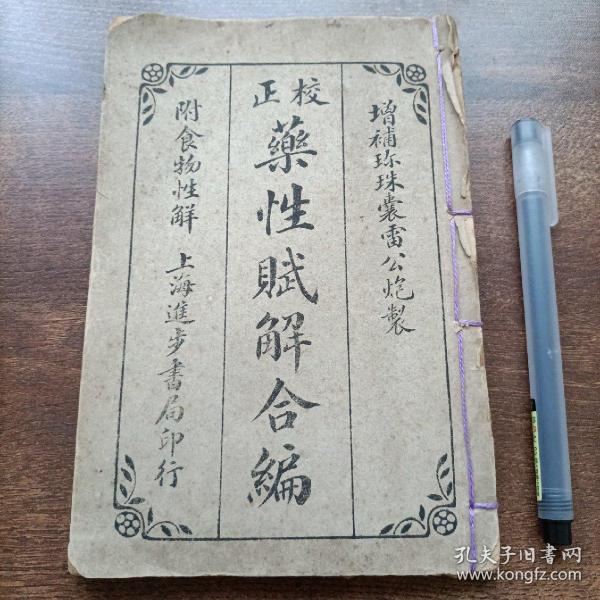 增補珎珠囊雷公炮製
校正
藥性賦解合編
附食物性解
上海進步書局印行
孔夫子旧书网
www.kongfz.com